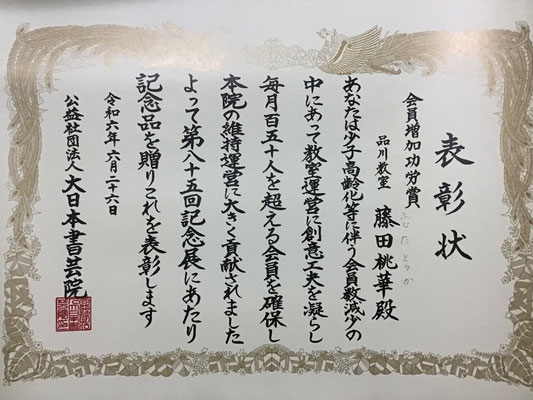 表彰状
会員増加功労賞
品川教室 藤田桃華殿
ふじたとうか
あなたは少子高齢化等に伴う会員数減少の
中にあって教室運営に創意工夫を凝らし
毎月百五十人を超える会員を確保し
本院の維持運営に大きく貢献されました
よって第八十五回記念展にあたり
記念品を贈りこれを表彰します
令和六年六月二十六日
公益社団法人大日本書芸院